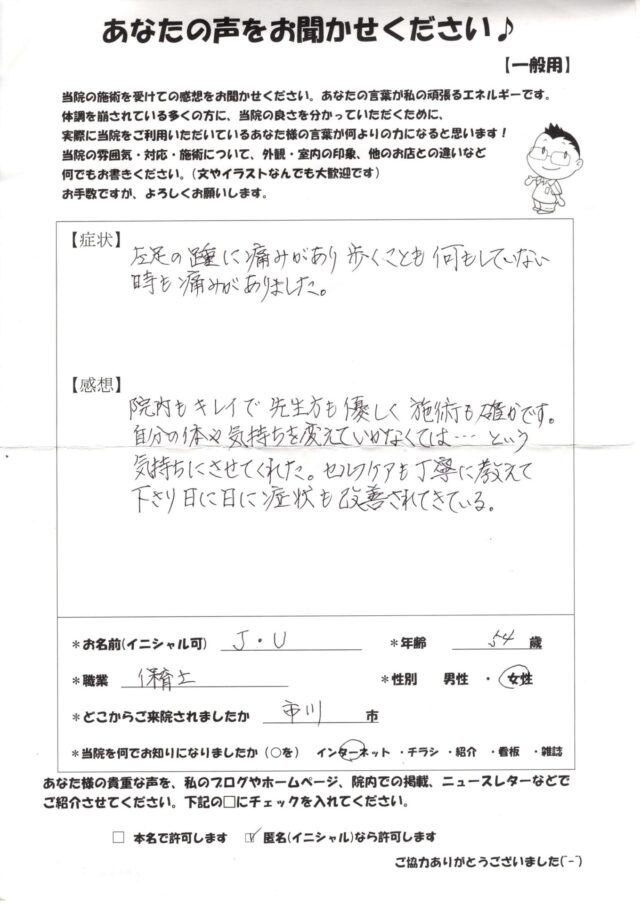 あなたの声をお聞かせください♪
【一般用】
当院の施術を受けての感想をお聞かせください。あなたの言葉が私の頑張るエネルギーです。
体調を崩されている多くの方に、当院の良さを分かっていただくために、
実際に当院をご利用いただいているあなた様の言葉が何よりの力になると思います！
当院の雰囲気・対応・施術について、外観・室内の印象、他のお店との違いなど
何でもお書きください。（文やイラストなんでも大歓迎です）
お手数ですが、よろしくお願いします。
【症状】
左足の踵に痛みがあり 歩くことも 何もしていない
時も 痛みがありました。
【感想】
院内もキレイで 先生方も優しく 施術も確かです。
自分の体や気持ちを変えていかなくては… という
気持ちにさせてくれた。セルフケアも丁寧に教えて
下さり 日に日に症状も改善されてきている。
＊お名前(イニシャル可) J・U ＊年齢 54 歳
＊職業 保育士 ＊性別 男性 ・ 女性
＊どこからご来院されましたか 市川 市
＊当院を何でお知りになりましたか（○を） インターネット ・チラシ ・紹介 ・看板 ・雑誌
あなた様の貴重な声を、私のブログやホームページ、院内での掲載、ニュースレターなどで
ご紹介させてください。下記の□にチェックを入れてください。
□ 本名で許可します ☑ 匿名(イニシャル)なら許可します
ご協力ありがとうございました(^-^)